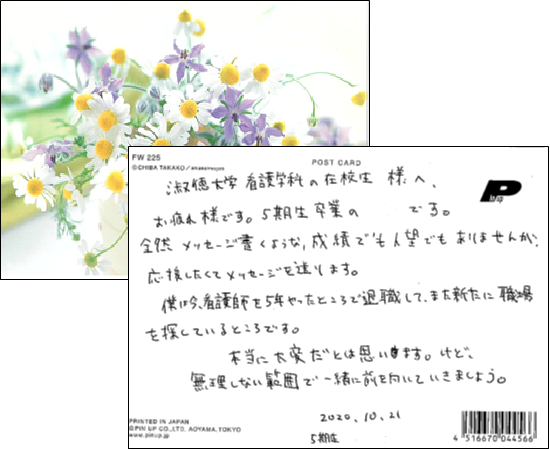 FW 225
©CHIBA TAKAKO/
POST CARD
淑徳大学 看護学科の在校生 様へ、
お疲れ様です。5期生卒業の です。
全然 メッセージ書くような、成績でも人望でもありませんが、
応援したくてメッセージを送ります。
僕は今、看護師を5年やったところで退職して、また新たに職場
を探しているところです。
本当に大変だとは思います。けど、
無理しない範囲で一緒に前を向いていきましょう。
2020.10.21
5期生
PRINTED IN JAPAN
©PIN UP CO.,LTD. AOYAMA,TOKYO
www.pinup.jp
4 516670 044566